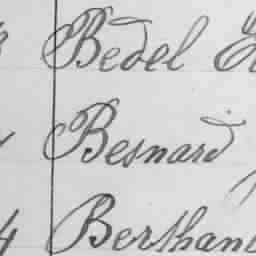 Bedel
Besnard
4 Berthan